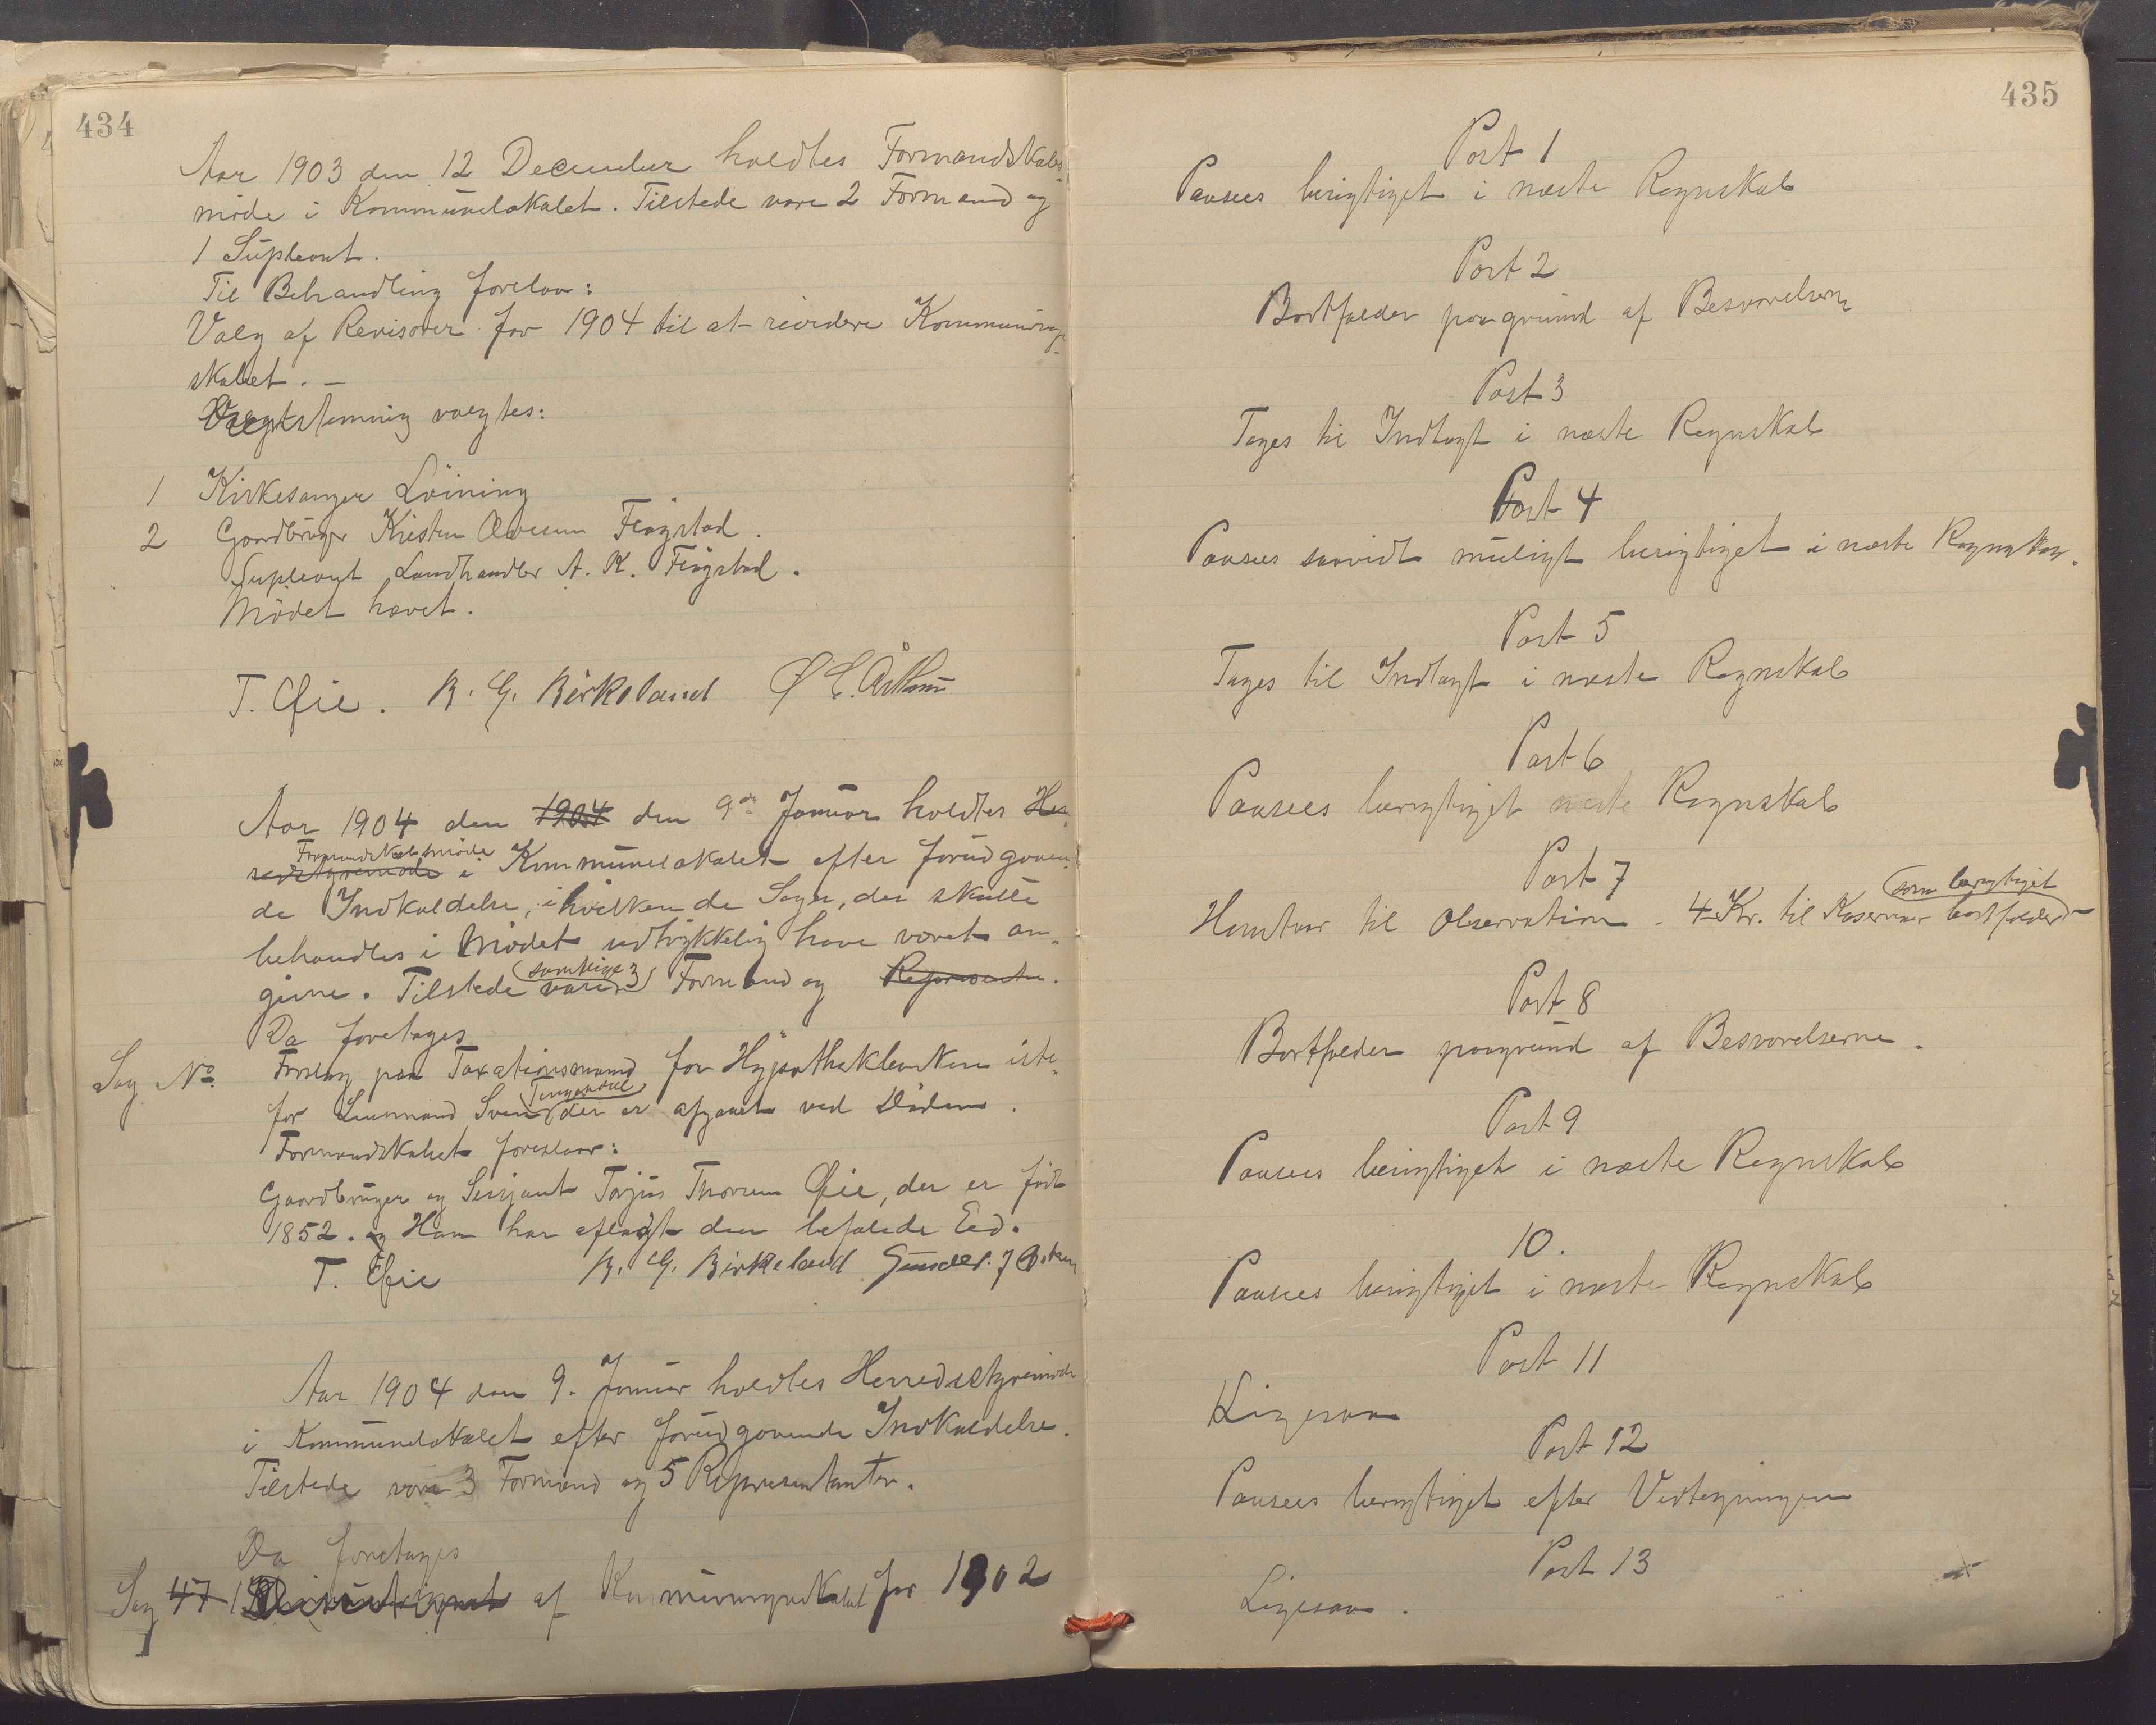 434
Aar 1903 den 12 December holdtes Formandskabs-
møde i Kommunelokalet. Tilstede vare 2 Formænd og
1 Supleant.
Til Behandling forelaa:
Valg af Revisorer for 1904 til at revidere Kommuneregn-
skabet. –
stemning valgtes:
1 Kirkesanger Löining
2 Gaardbruger Kristen Fiøgstad.
Supleant Landhandler A. K. Fiøgstad.
Mødet hævet.
T. Øie. B. G. Birkeland
Aar 1904 den 1904 den 9de Januar holdtes Her
Formandskabsmøde
redstyremøde i Kommunelokalet efter forudgaaen-
de Indkaldelse, i hvilken de Sager, der skulle
behandles i Mødet udtrykkelig have været an-
samtlige 3
givne. Tilstede vare Formænd og Repræsentan.
Da foretages
Sag No. Forslag paa Taxationsmand for Hypothekbanken iste-
Tengesdal
for Lensmand Svend der er afgaaet ved Døden.
Formandskabet foreslaar:
Gaardbruger og Serjant Torjus Thorsen Øie, der er född
1852. og Han har aflagt den befalede Eed.
T. Øie B. G. Birkeland Gunder J
Aar 1904 den 9. Januar holdtes Herredsstyremøde
i Kommunelokalet efter forudgaaende Indkaldelse.
Tilstede vare 3 Formænd og 5 Repræsentanter.
Da foretages
Sag 47 1 af Kommuneregnskabet for 1902
435
Post 1
Paasees berigtiget i næste Regnskab
Post 2
Bortfalder paagrund af Besvarelserne
Post 3
Tages til Indtægt i næste Regnskab
Post 4
Paasees saavidt muligt berigtiget i næste Regnskab.
Post 5
Tages til Indtægt i næste Regnskab
Post 6
Paasees berigtiget næste Regnskab
Post 7
som berigtiget
Henstaar til Observation. 4 Kr. til Kaserner bortfalder
Post 8
Bortfalder paagrund af Besvarelserne.
Post 9
Paasees berigtiget i næste Regnskab
10.
Paasees berigtiget i næste Regnskab
Post 11
Ligesaa
Post 12
Paasees berigtiget efter Vedtegningen
Post 13
Ligesaa.